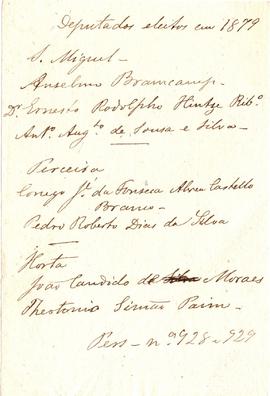 Deputados eleitos em 1879
S. Miguel -
Anselmo Bramcamp -
Dr. Ernesto Rodolpho Hintze Ribº
Antº. Augtº de Sousa e Silva -
Terceira
Conego Jé. da Fonseca Abreu Castello
Branco -
Pedro Roberto Dias da Silva
Horta
João Candido de Moraes
Theotonio Simão Paim -
Pers - nº 928 e 929